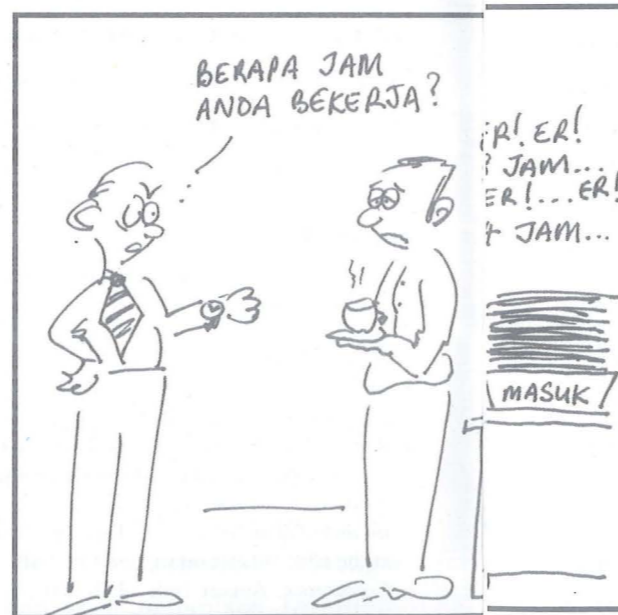 BERAPA JAM
ANDA BEKERJA?
ER!
JAM...
ER!...ER!
JAM...
MASUK